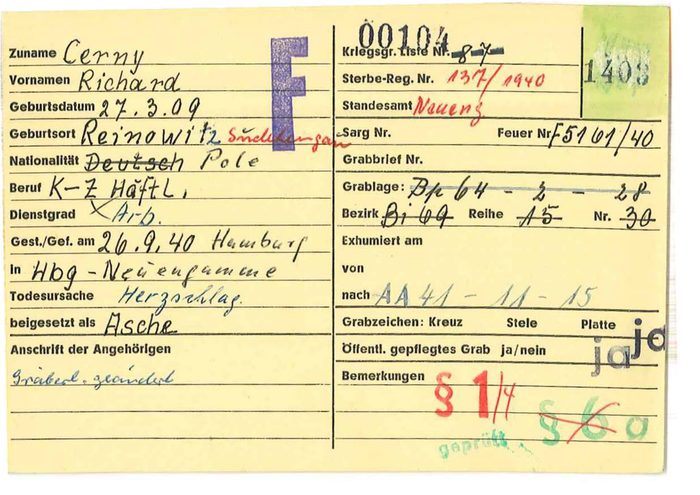 Zuname Cerny
Vornamen Richard
Geburtsdatum 27.3.09
Geburtsort Reinowitz
Nationalität Deutsch Pole
Beruf K-Z Häftl.
Dienstgrad Arb.
Gest./Gef. am 26.9.40 Hamburg
in Hbg-Neuengamme
Todesursache Herzschlag.
beigesetzt als Asche
Anschrift der Angehörigen
Gräberl. geändert
F
00104
Kriegsgr. Liste Nr. 87
1408
Sterbe-Reg. Nr. 137/1940
Standesamt Neueng
Sarg Nr. Feuer Nr. F5161/40
Grabbrief Nr.
Grablage: Bp 64 - 2 - 28
Bezirk Bi 69 Reihe 15 Nr. 30
Exhumiert am
von
nach AA 41 - 11 - 15
Grabzeichen: Kreuz Stele Platte ja
Öffentl. gepflegtes Grab ja/nein ja
Bemerkungen
§ 1/4
§ 6a
geprüft